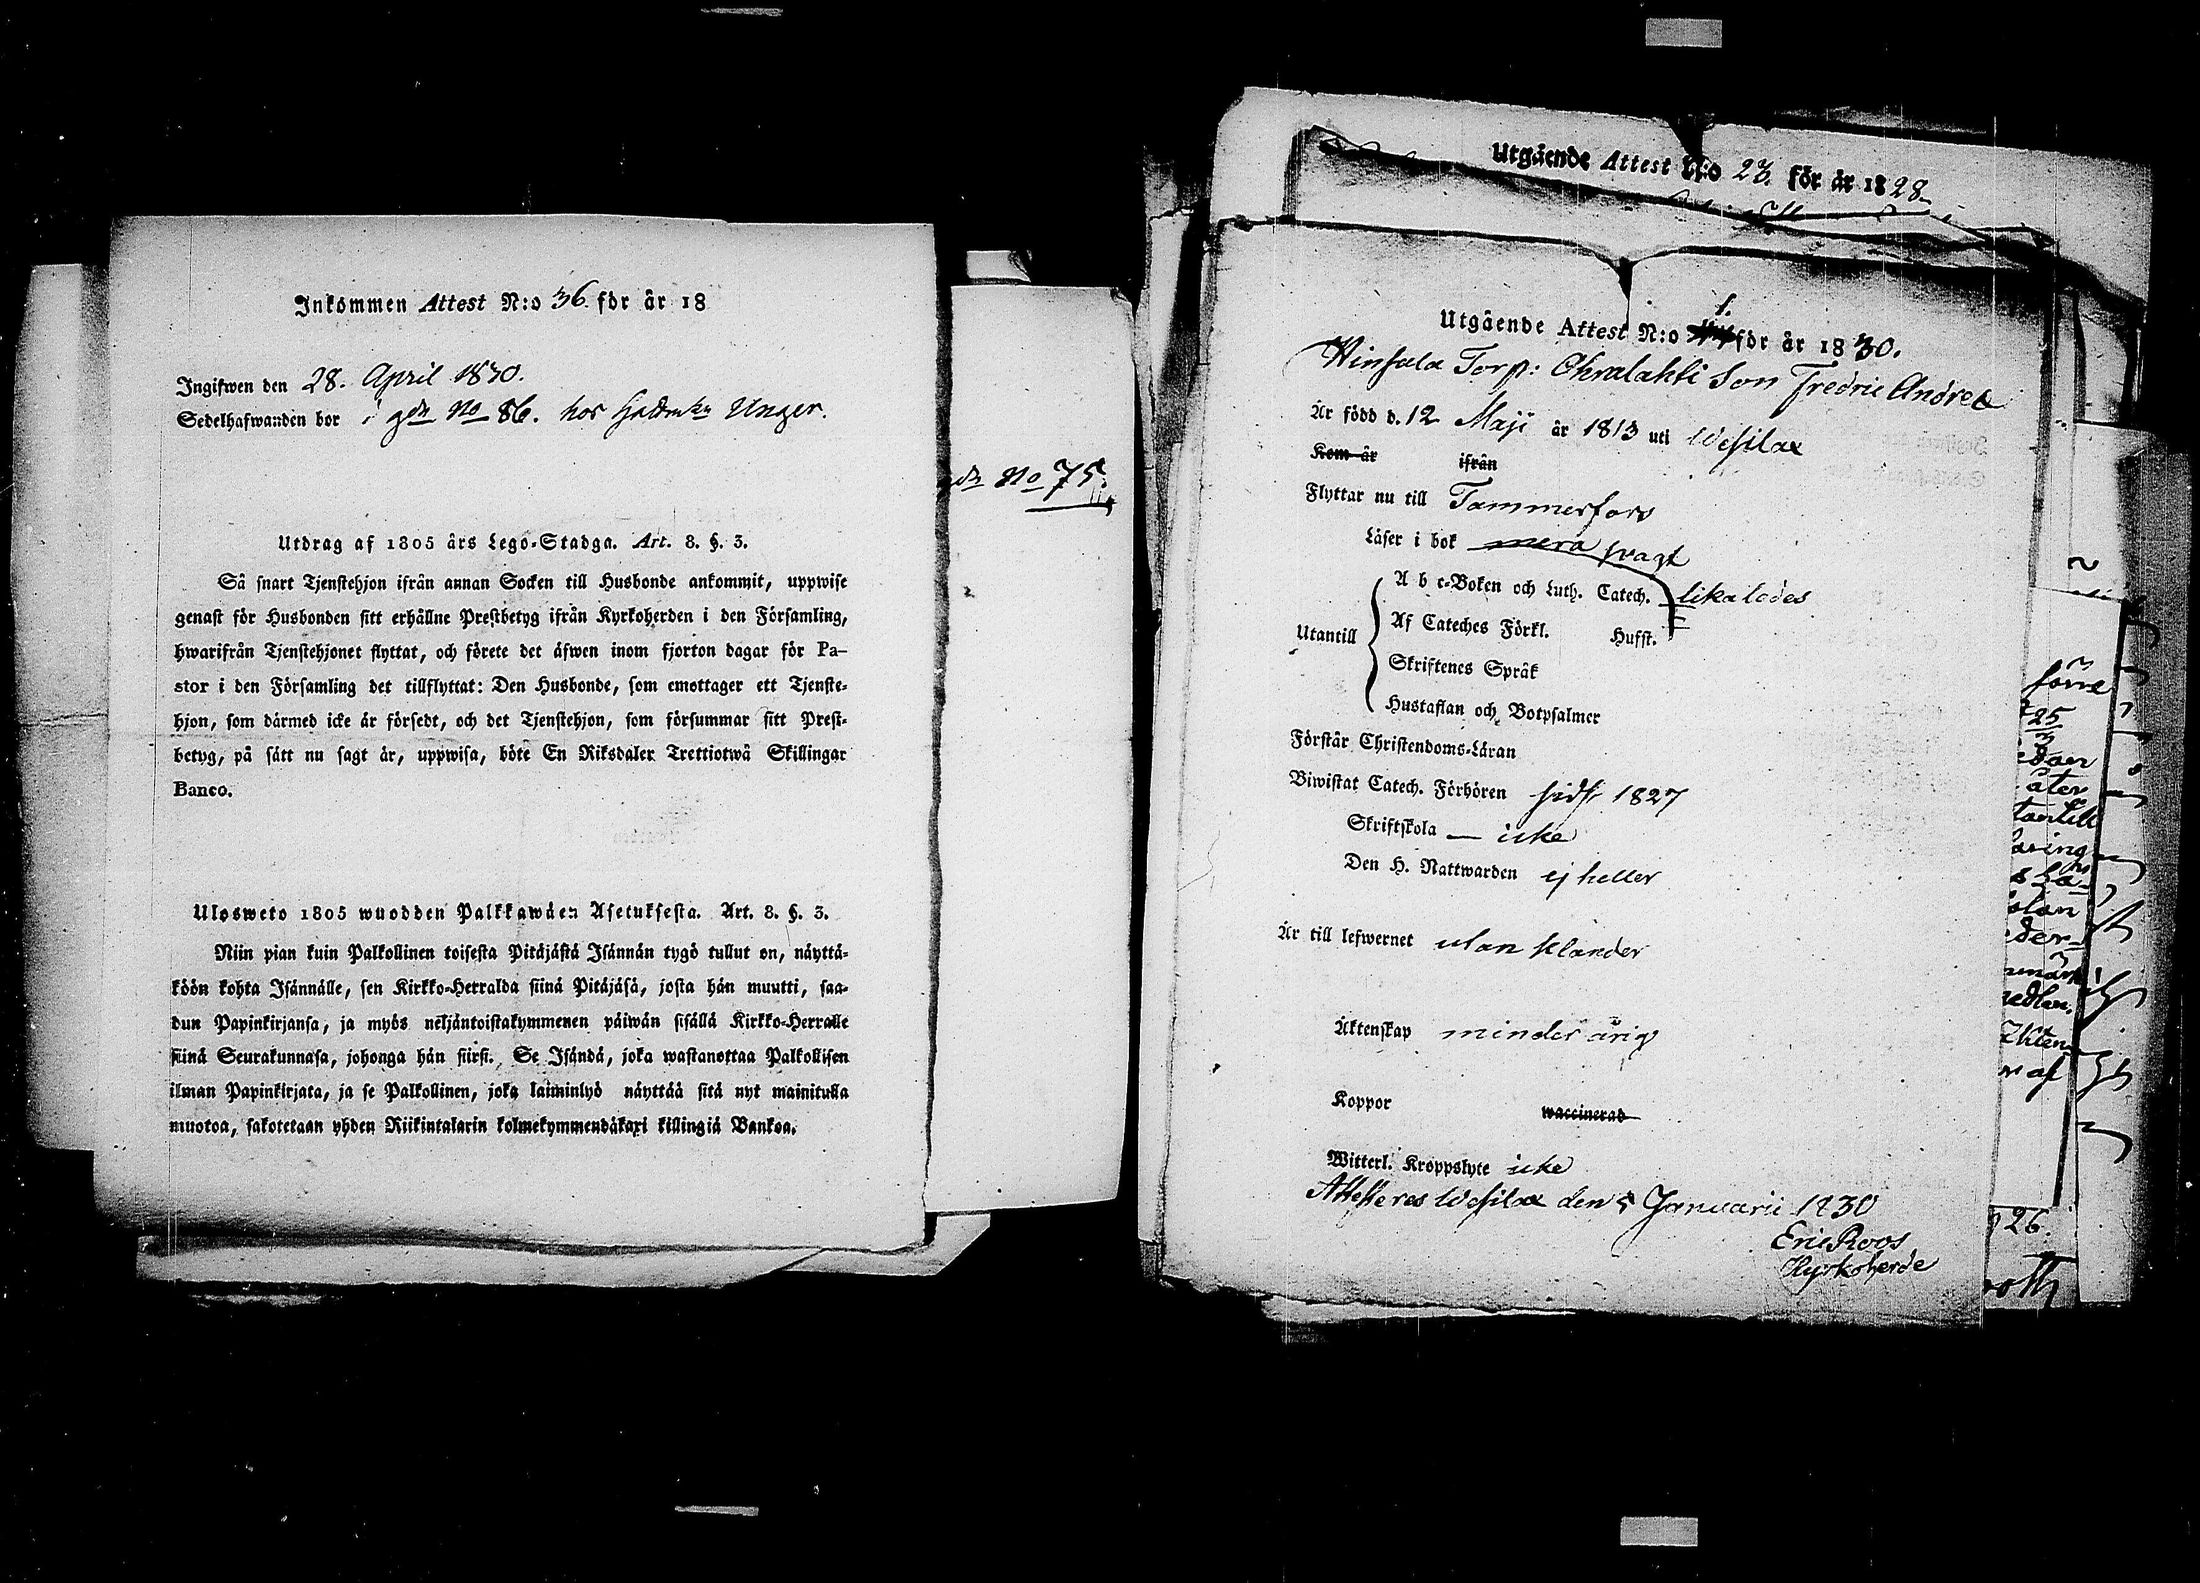 Inkommen Attest N:o 36. för år 18
Ingifwen den 28. April 1830.
Sedelhafwanden bor i gdn No 86. hos Unger.
Utdrag af 1805 års Lego-Stadga. Art. 8. §. 3.
Så snart Tjenstehjon ifrån annan Socken till Husbonde ankommit, uppwise
genast för Husbonden sitt erhållne Prestbetyg ifrån Kyrkoherden i den Församling,
hwarifrån Tjenstehjonet flyttat, och förete det äfwen inom fjorton dagar för Pa-
stor i den Församling det tillflyttat: Den Husbonde, som emottager ett Tjenste-
hjon, som därmed icke är försedt, och det Tjenstehjon, som försummar sitt Prest-
betyg, på sätt nu sagt är, uppwisa, böte En Riksdaler Trettiotwå Skillingar
Banco.
Ulosweto 1805 wuodden Palkkawäen Asetuksesta. Art. 8. §. 3.
Niin pian kuin Palkollinen toisesta Pitäjästä Isännän tygö tullut on, näyttä-
köön kohta Isännälle, sen Kirkko-Herralda siinä Pitäjäsä, josta hän muutti, saa-
dun Papinkirjansa, ja myös neljäntoistakymmenen päiwän sisällä Kirkko-Herralle
siinä Seurakunnasa, johonga hän siirsi. Se Isändä, joka wastanottaa Palkollisen
ilman Papinkirjata, ja se Palkollinen, joka laiminlyö näyttää sitä nyt mainitulla
muotoa, sakotetaan yhden Riikintalarin kolmekymmendäkaxi killingiä Bankoa.
dn No 75.
Utgående Attest N:o 23. för år 1828
Utgående Attest N:o 1. för år 1830.
Hinsala Torp: Ohralahti Son Fredric Andrea
Är född d. 12 Maji år 1813 uti Wesilax
Kom år ifrån
Flyttar nu till Tammerfors
Läser i bok mera svagt
A b c-Boken och Luth. Catech. likaledes
Utantill
Af Cateches Förkl. Husst.
Skriftenes Språk
Hustaflan och Botpsalmer
Förstår Christendoms-Läran
Biwistat Catech. Förhören sidst 1827
Skriftskola — icke
Den H. Nattwarden ej heller
Är till lefwernet utan klander
Äktenskap minderårig
Koppor waccinerad
Witterl. Kroppslyte icke
Attesteres Wesilax den 5 Januarii 1830
Eric Roos
Kyrkoherde
förre
25
åter
26.